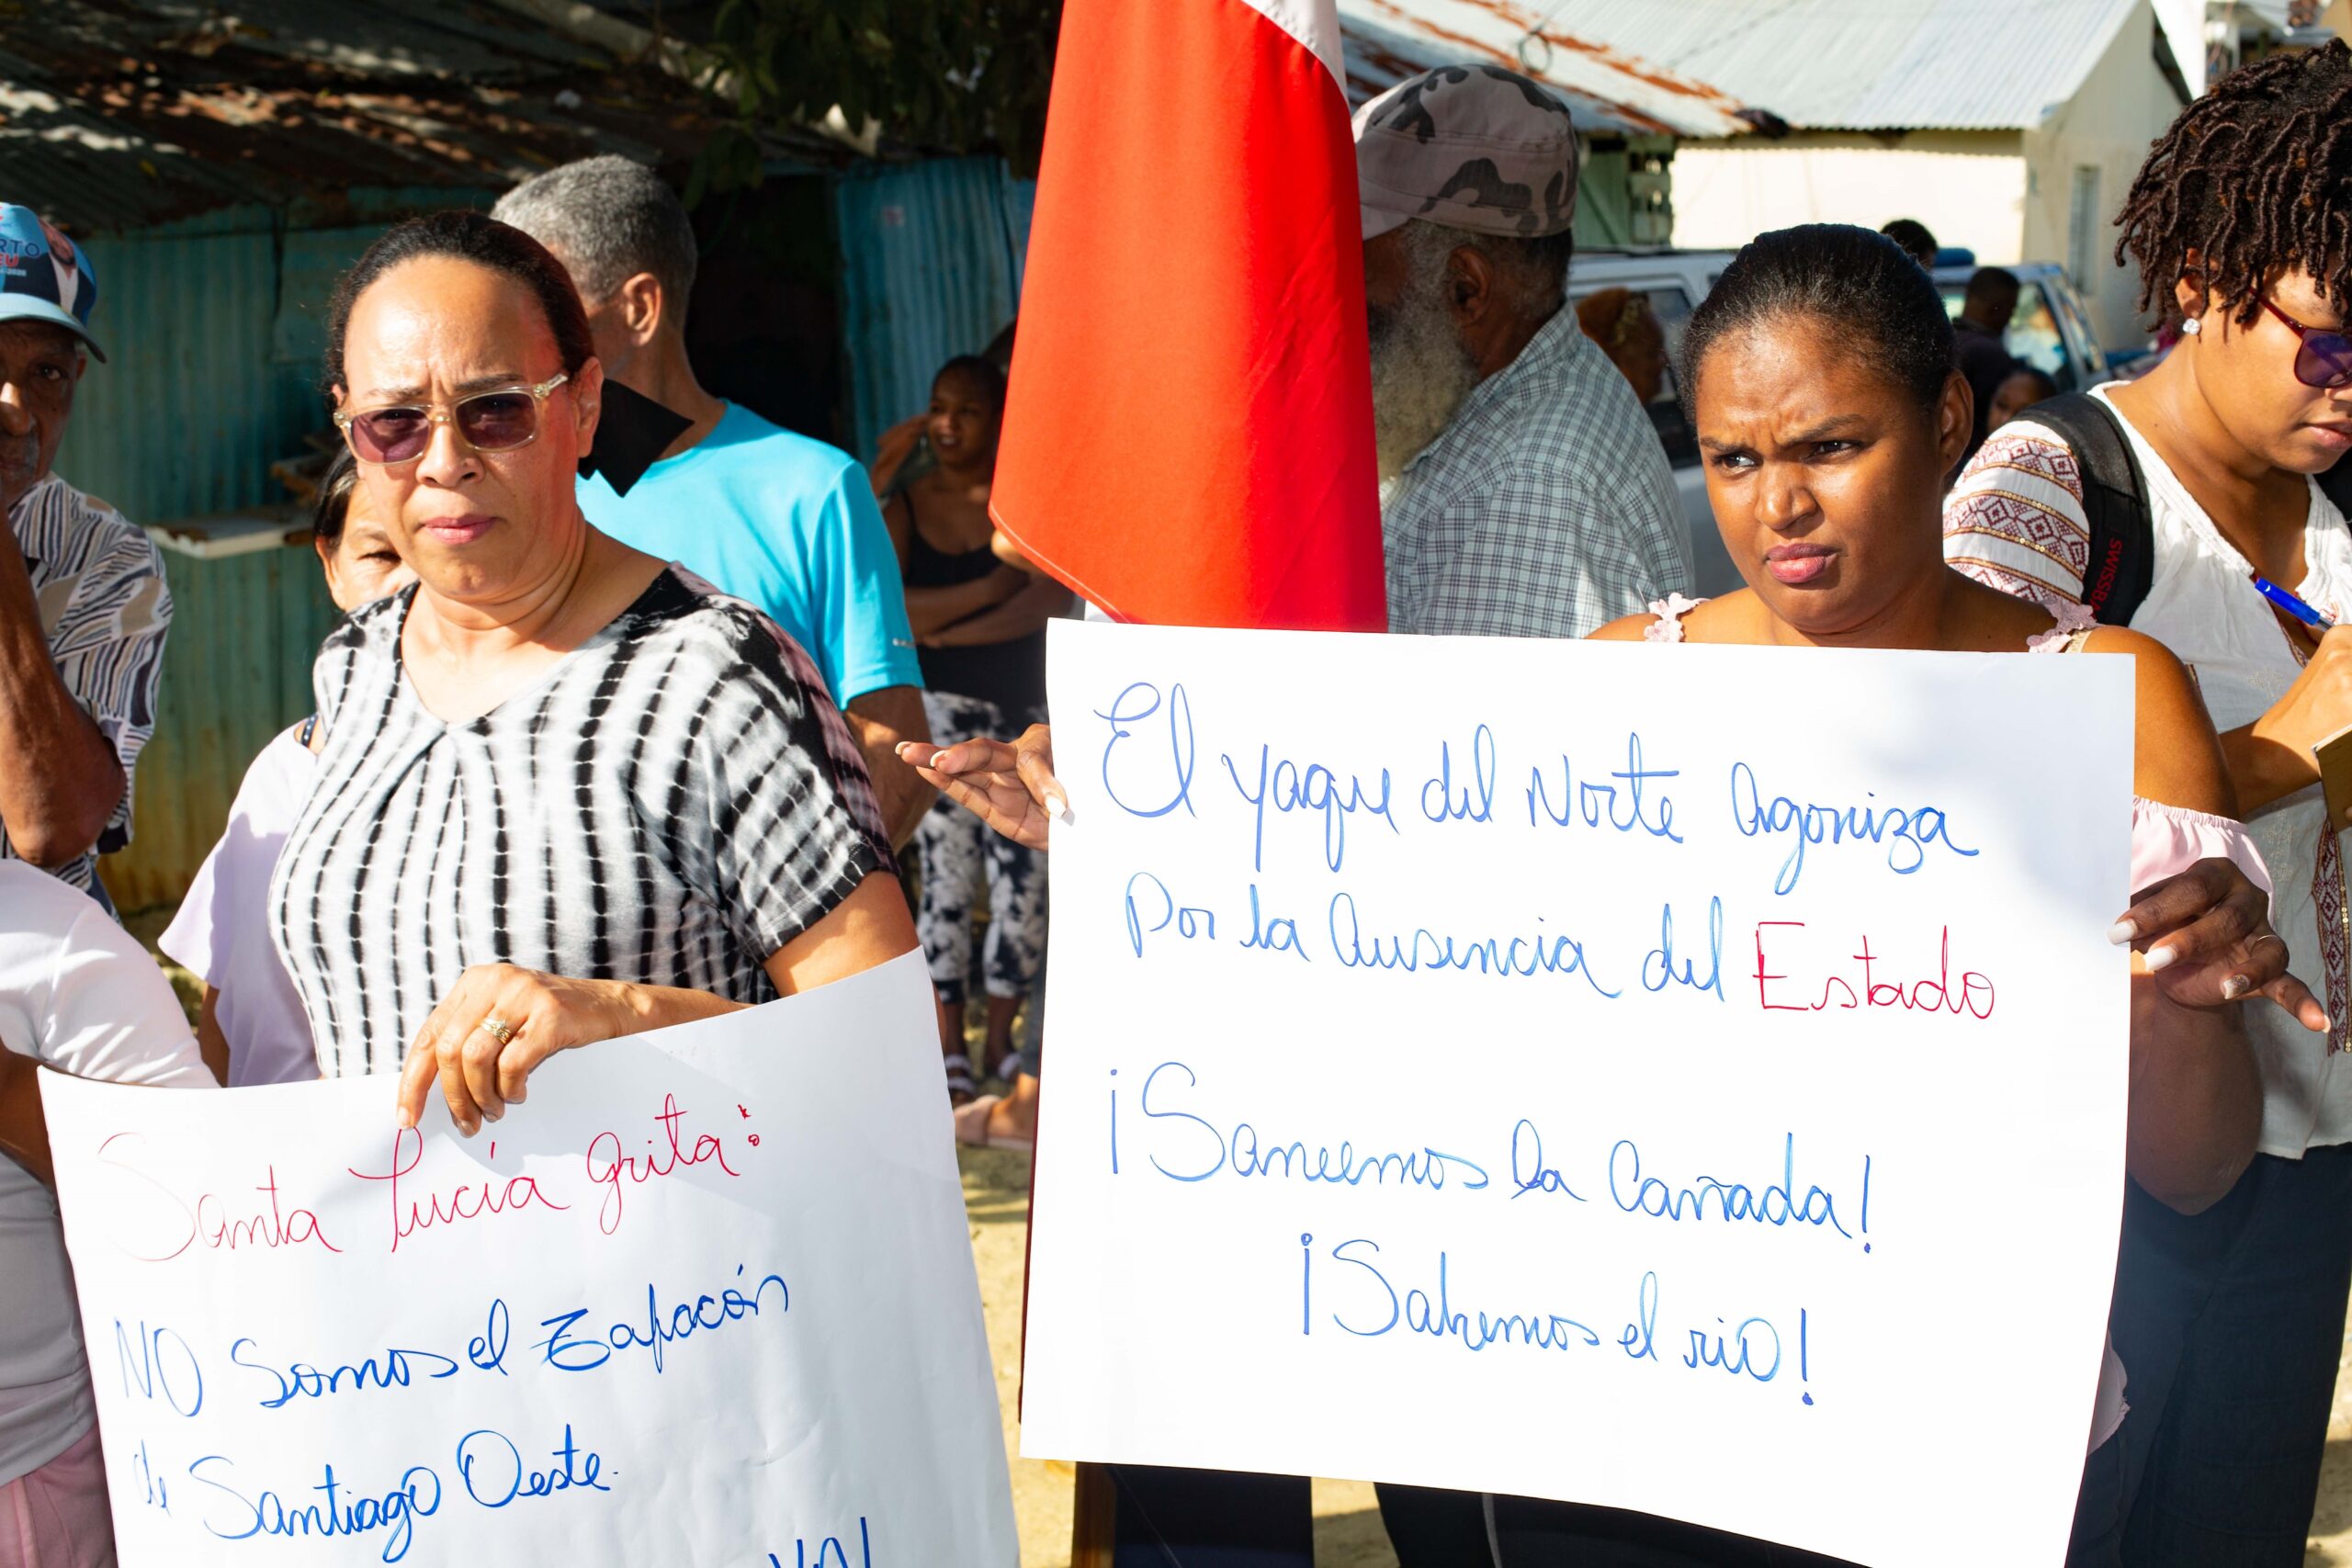 Santa Lucía grita:
NO somos el Zafacón
de Santiago Oeste.
YA!
El yaque del Norte Agoniza
Por la Ausencia del Estado
¡Saneemos la Cañada!
¡Salvemos el rio!
RTO
SWISS